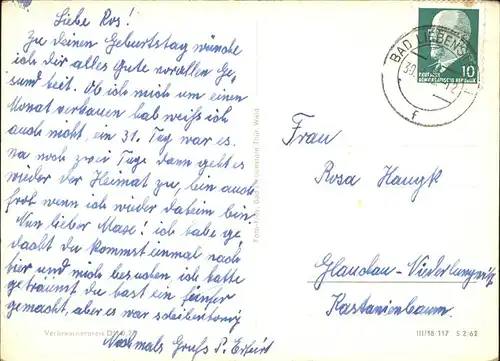 Liebe Ros!
Zu deinen Geburtstag wünsche
ich dir alles Gute vorallen Ge,
sundheit. Ob ich mich um einen
Monat verhauen hab weiß ich
auch nicht, ein 31. Tag war es.
Na noch zwei Tage dann geht es
wieder der Heimat zu, bin auch
froh wenn ich wieder daheim bin.
Nun lieber ich habe ge,
dacht du kommst einmal nach
hier und mich besuchen ich hatte
geträumt du hast ein
gemacht, aber es war
Nochmals Gruß P. Erfurt
Verbraucherpreis
Foto-
Thür. Wald
BAD LIEBENS
39
12
f
10
DEUTSCHE
DEMOKRATISCHE REPUBLIK
Frau
Rosa Hangk
Glauchau-
Kastanienbaum.
III/18/117 S 2/62